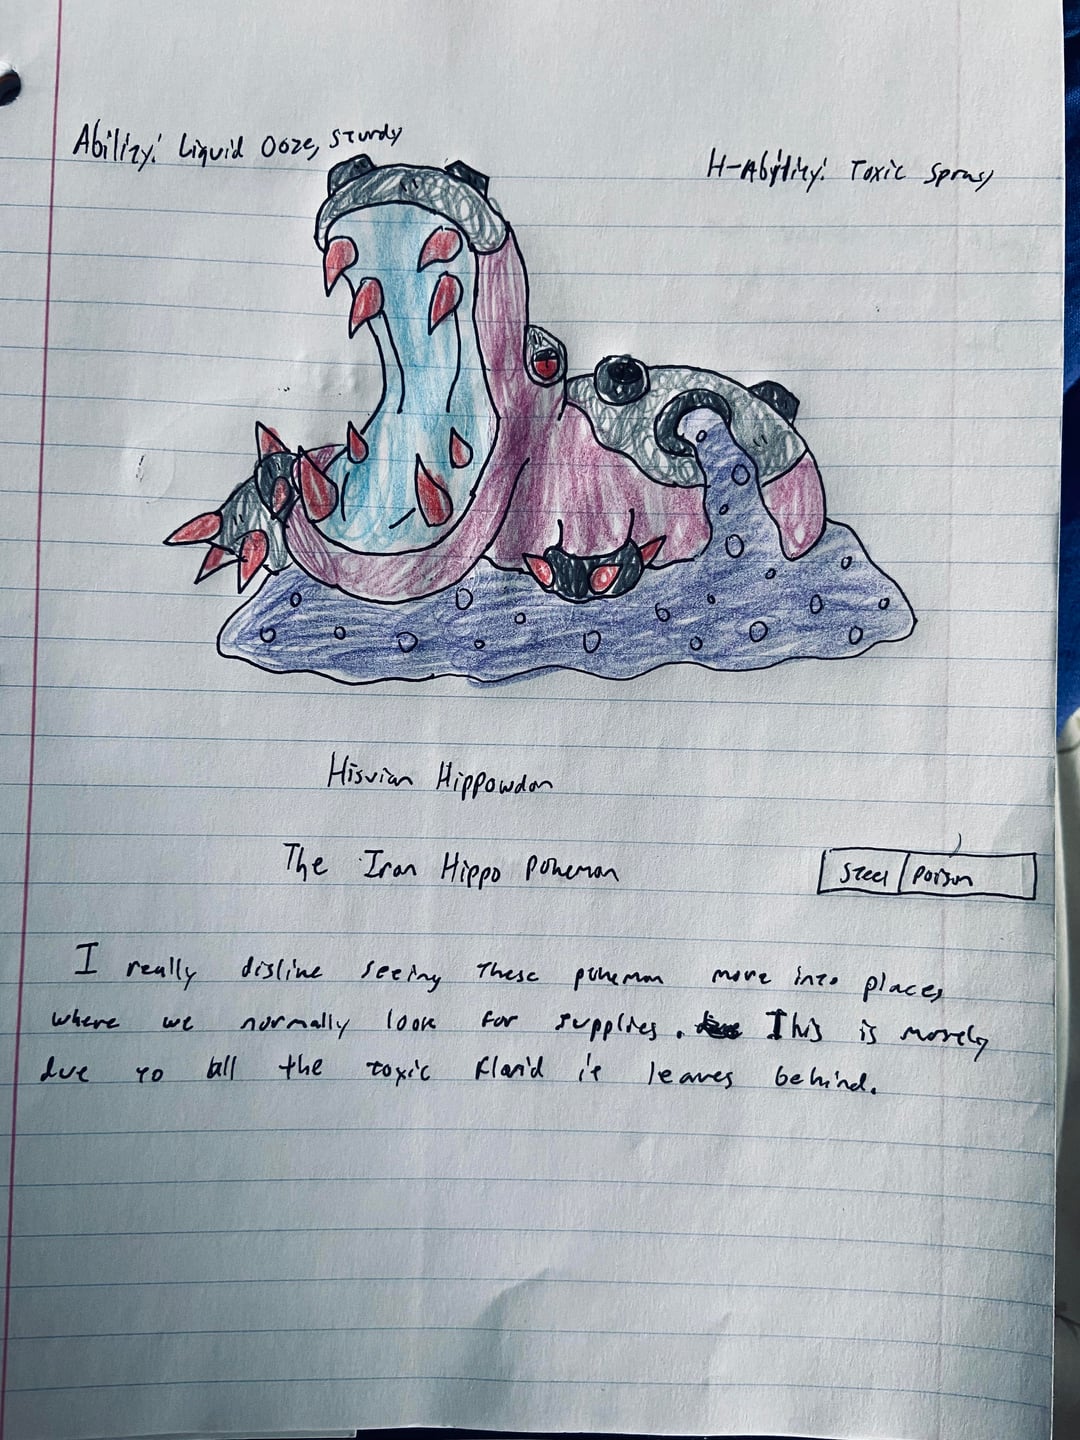 Ability: Liquid Ooze, Sturdy
H-Ability: Toxic Spray
Hisuian Hippowdon
The Iron Hippo Pokemon
Steel Poison
I really dislike seeing these pokemon move into places
where we normally look for supplies. This is mostly
due to all the toxic fluid it leaves behind.